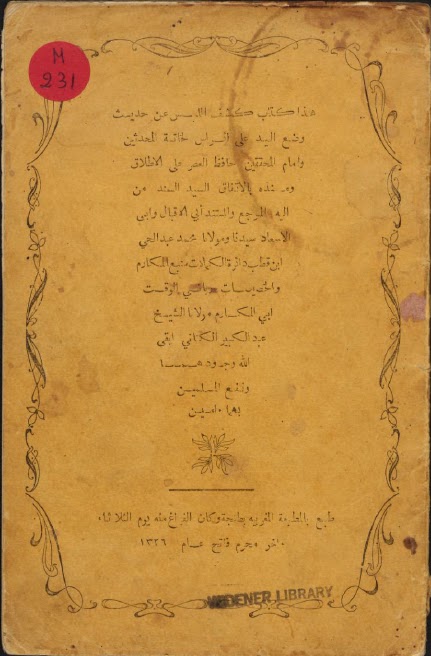 M
231
هذا كتاب كشف اللبس عن حديث
وضع اليد على الراس لخاتمة المحدثين
وامام المحققين حافظ العصر على الاطلاق
ومسنده بالاتفاق السيد السند من
اليه المرجع والمستند أبي الاقبال وابي
الاسعاد سيدنا ومولانا محمد عبد الحي
ابن قطب دائرة الكمالات منبع المكارم
والخصوصيات الوقت
ابي المكارم مولانا الشيخ
عبد الكبير الكتاني ابقى
الله وجودهمــا
ونفع المسلمين
بهما ءامين
طبع بالمطبعة المغربية بطنجة وكان الفراغ منه يوم الثلاثاء
ءاخر محرم فاتح عام ١٣٢٦
WIDENER LIBRARY